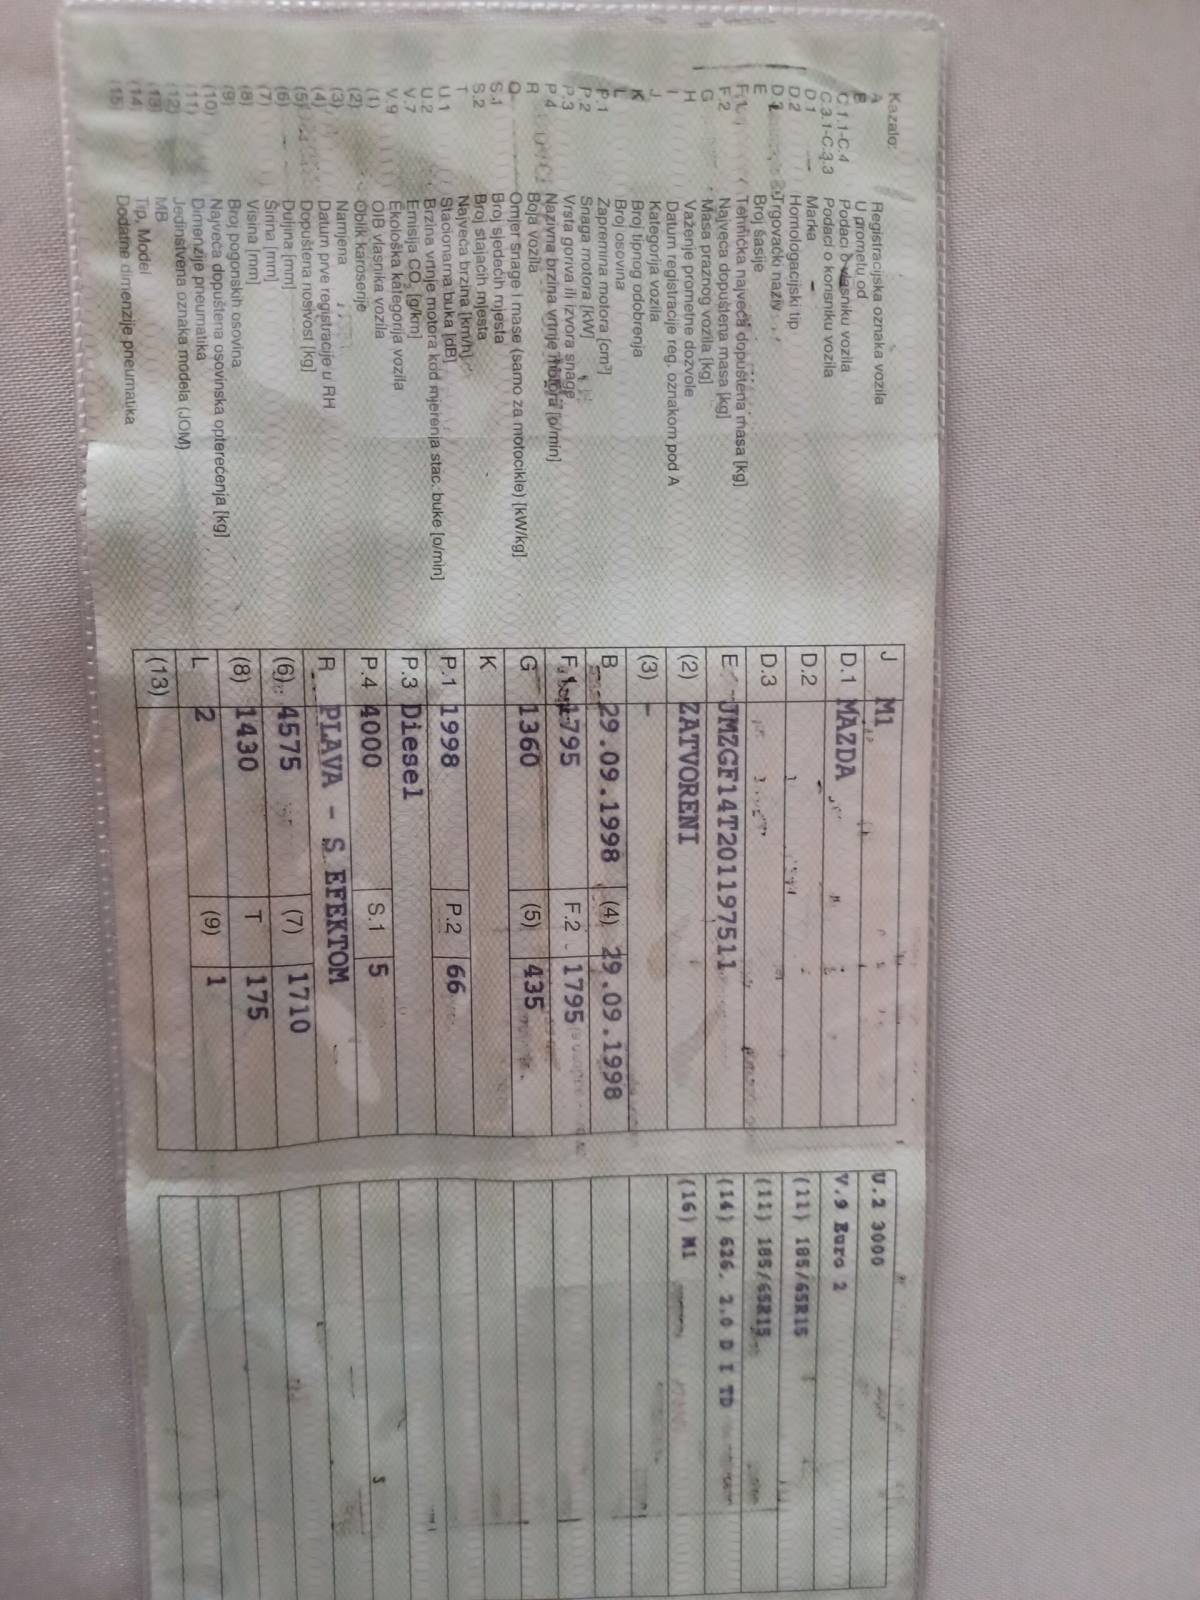 Kazalo:
A Registracijska oznaka vozila
B U prometu od
C.1.1-C.4 Podaci o vlasniku vozila
C.3.1-C.3.3 Podaci o korisniku vozila
D.1 Marka
D.2 Homologacijski tip
D.3 Trgovački naziv
E Broj šasije
F.1 Tehnička najveća dopuštena masa [kg]
F.2 Najveća dopuštena masa [kg]
G Masa praznog vozila [kg]
H Važenje prometne dozvole
I Datum registracije reg. oznakom pod A
J Kategorija vozila
K Broj tipnog odobrenja
L Broj osovina
P.1 Zapremina motora [cm³]
P.2 Snaga motora [kW]
P.3 Vrsta goriva ili izvora snage
P.4 Nazivna brzina vrtnje motora [o/min]
R Boja vozila
Q Omjer snage i mase (samo za motocikle) [kW/kg]
S.1 Broj sjedećih mjesta
S.2 Broj stajaćih mjesta
T Najveća brzina [km/h]
U.1 Stacionarna buka [dB]
U.2 Brzina vrtnje motora kod mjerenja stac. buke [o/min]
V.7 Emisija CO₂ [g/km]
V.9 Ekološka kategorija vozila
(1) OIB vlasnika vozila
(2) Oblik karoserije
(3) Namjena
(4) Datum prve registracije u RH
(5) Dopuštena nosivost [kg]
(6) Duljina [mm]
(7) Širina [mm]
(8) Visina [mm]
(9) Broj pogonskih osovina
(10) Najveća dopuštena osovinska opterećenja [kg]
(11) Dimenzije pneumatika
(12) Jedinstvena oznaka modela (JOM)
(13) MB
(14) Tip, Model
(15) Dodatne dimenzije pneumatika
J M1
D.1 MAZDA
D.2
D.3
E JMZGF14T201197511
(2) ZATVORENI
(3) -
B 29.09.1998 (4) 29.09.1998
F.1 1795 F.2 1795
G 1360 (5) 435
K
P.1 1998 P.2 66
P.3 Diesel
P.4 4000 S.1 5
R PLAVA - S EFEKTOM
(6) 4575 (7) 1710
(8) 1430 T 175
L 2 (9) 1
(13)
U.2 3000
V.9 Euro 2
(11) 185/65R15
(11) 185/65R15
(14) 626. 2.0 D I TD
(16) M1